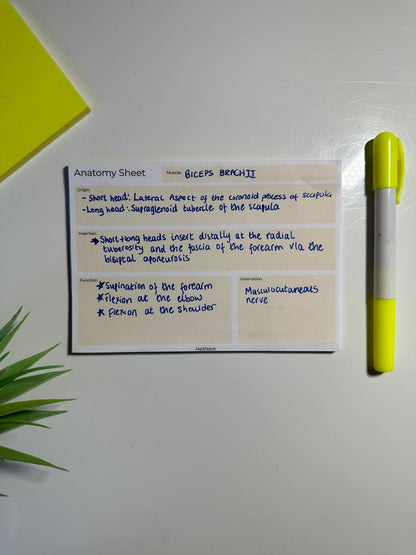 Anatomy Sheet
Muscle: BICEPS BRACHII
Origin
- Short head: Lateral Aspect of the coronoid process of scapula
- Long head: Supraglenoid tubercle of the scapula
Insertion
→ Short + long heads insert distally at the radial
tuberosity and the fascia of the forearm via the
bicipital aponeurosis
Function
★ Supination of the forearm
★ Flexion at the elbow
★ Flexion at the shoulder
Innervation
Musculocutaneous
nerve
MedTeach